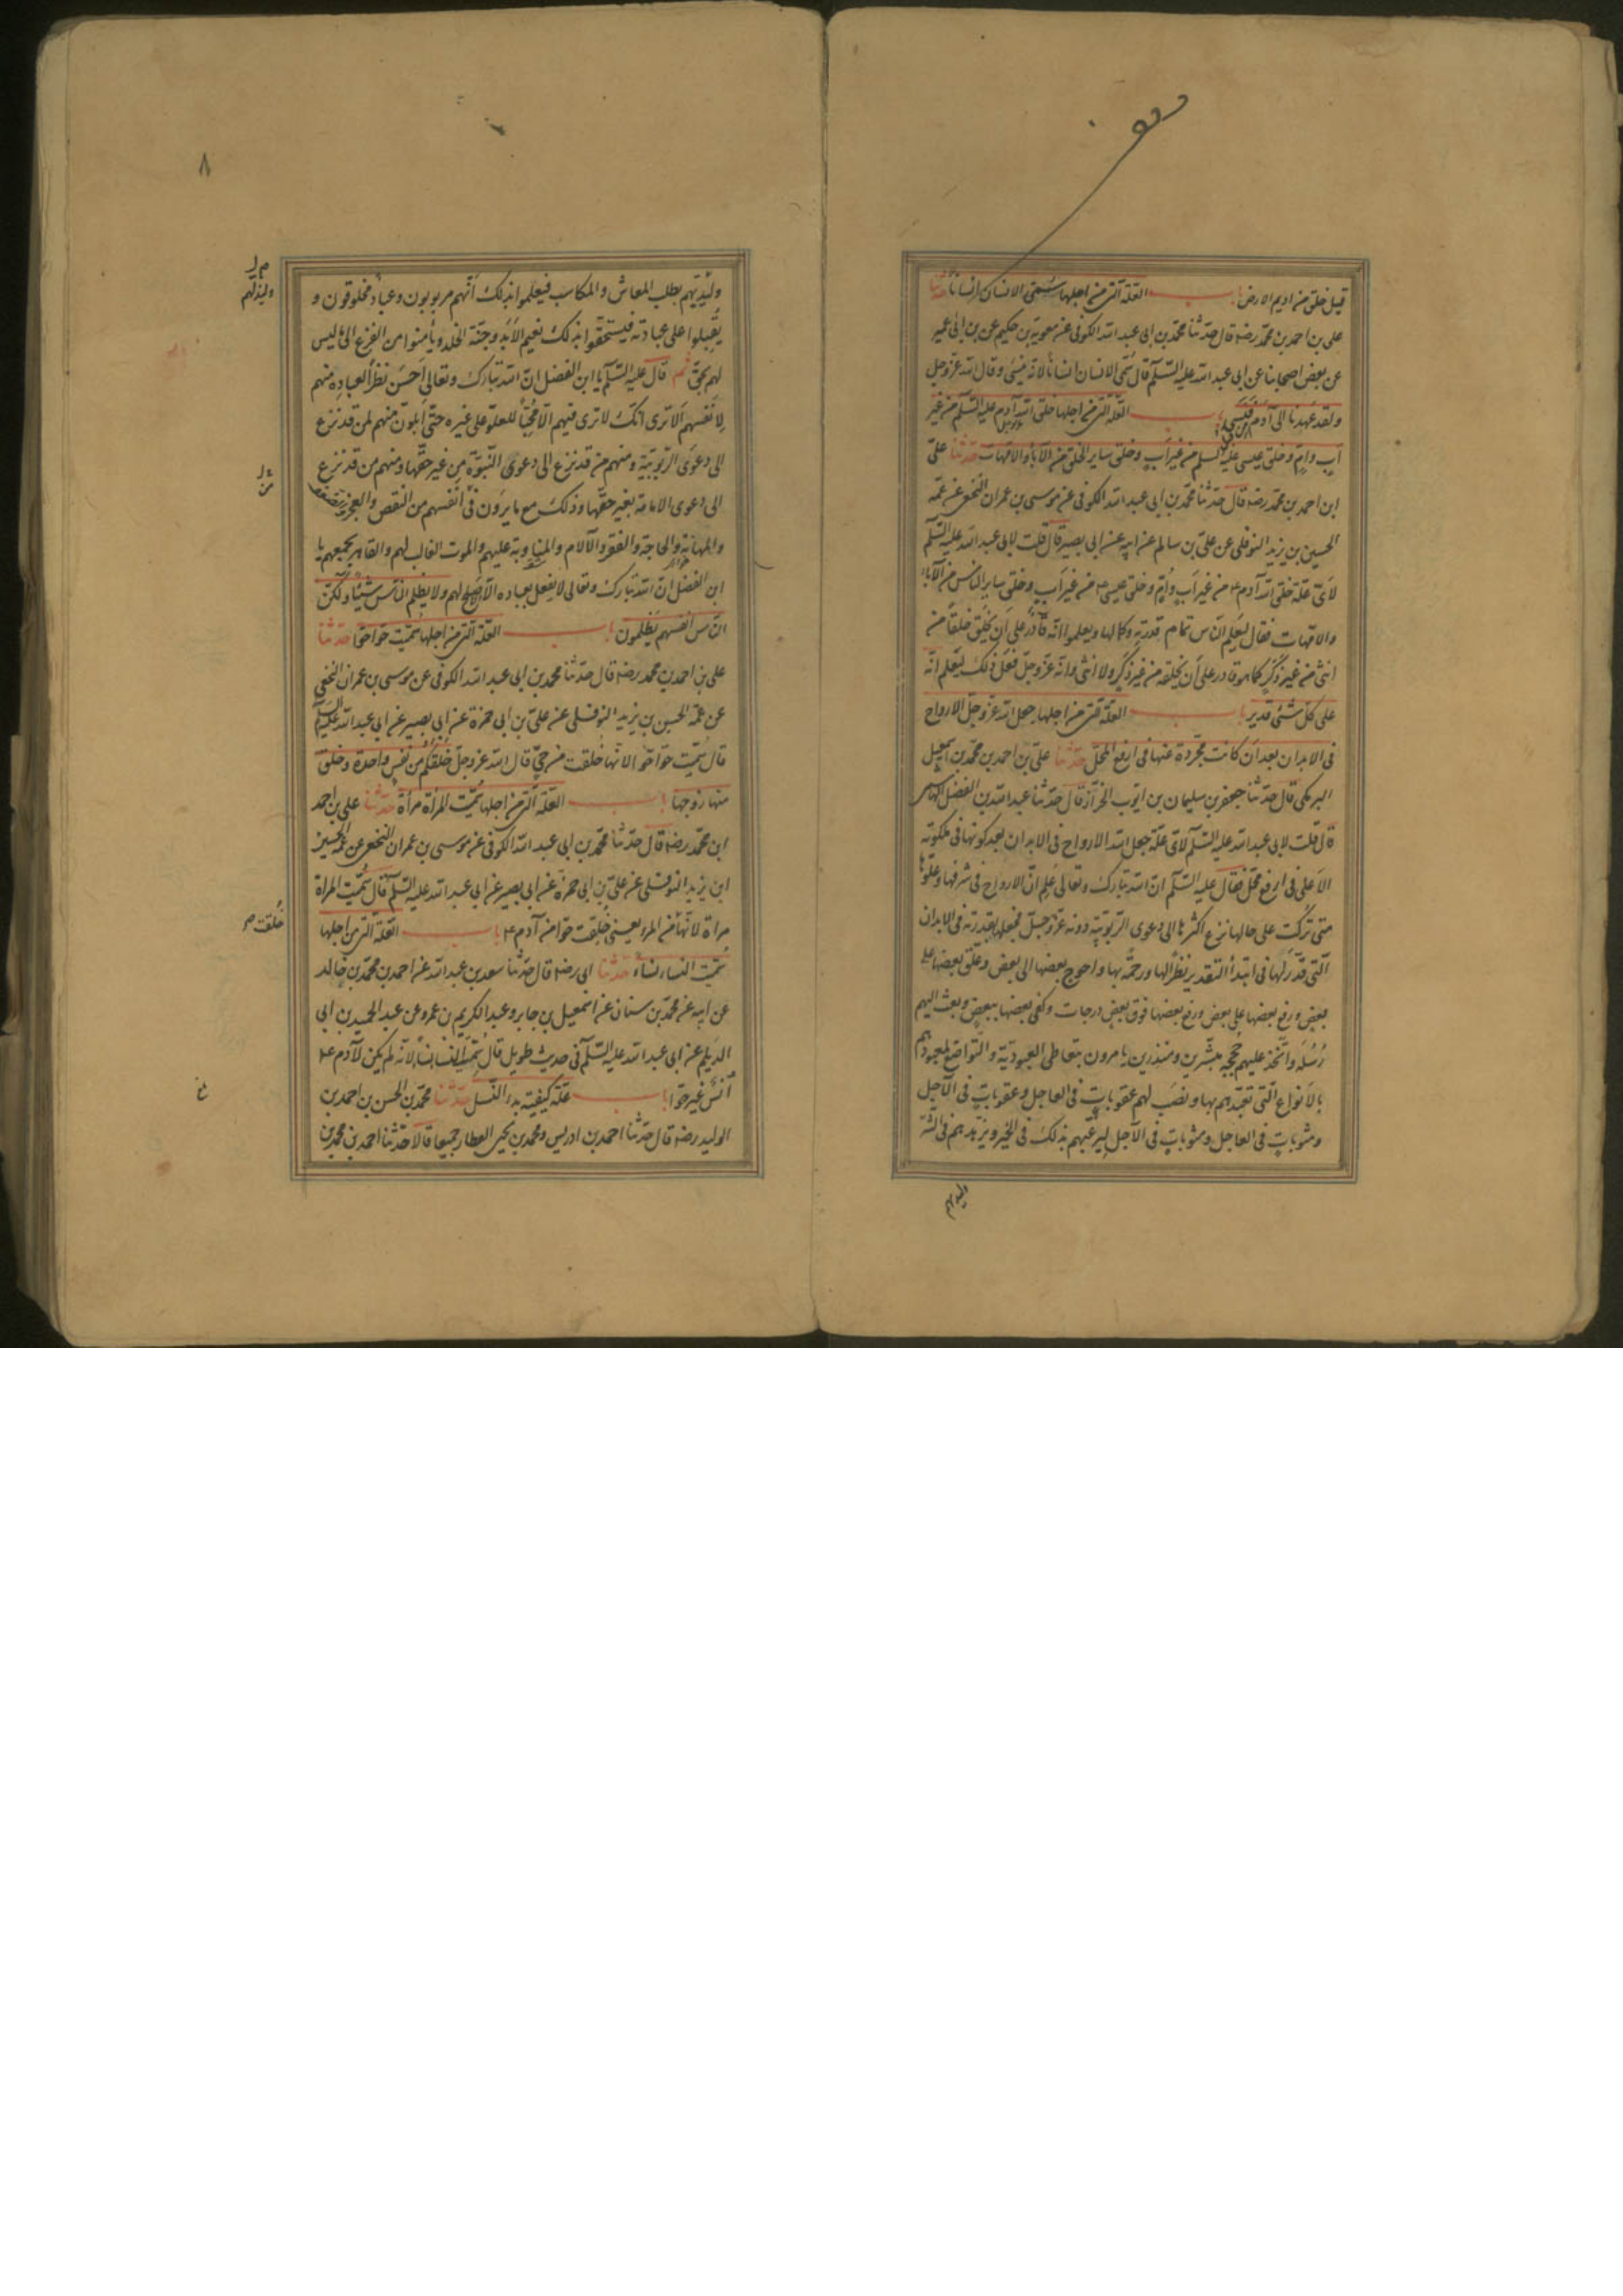 قيل خلق من اديم الارض باب العلة التي من اجلها سمّى الانسان انسانا حدثنا
على بن احمد بن محمّد رضه قال حدّثنا محمّد بن ابى عبد الله الكوفى عن معوية بن حكيم عن بن ابى عمير
عن بعض اصحابنا عن ابى عبد الله عليه السّلم قال سُمّى الانسان انسانا لانّه ينسى وقال الله عزّ وجل
ولقد عهدنا الى آدم فنسى باب العلّة التى من اجلها خلق الله آدم عليه السّلم من غير
اَب واُمّ وخلق عيسى عليه السلم من غير اَب وخلق ساير الخلق من الآباء والامّهات حدثنا علىّ
ابن احمد بن محمّد رضه قال حدّثنا محمّد بن ابى عبد الله الكوفى عن موسى بن عمران النخعى عن عمّه
الحسين بن يزيد النوفلى عن على بن سالم عن ابيه عن ابى بصير قال قلت لابى عبد الله عليه السّلم
لاىّ علّة خلق الله آدم ع من غير اَب واُمّ وخلق عيسى ع من غير اَب وخلق ساير الناس من الآباء
والامّهات فقال ليعلم النّاس تمام قدرته وكمالها ويعلموا انّه قادر على اَن يخلق خلقاً من
انثى من غير ذكرٍ كما هو قادر على اَن يخلقه من غير ذكرٍ ولا انثى وانّه عزّ وجلّ فعل ذلك ليعلم انّه
على كلّ شئ قدير باب العلّة التى من اجلها جعل الله عزّ وجل الارواح
فى الابدان بعد اَن كانت مجّردة عنها فى ارفع المحلّ حدّثنا علىّ بن احمد بن محمّد بن
البرمكى قال حدّثنا جعفر بن سليمان بن ايّوب الخزّاز قال حدّثنا عبد الله بن الفضل الهاشمى
قال قلت لابى عبد الله عليه السّلم لاىّ علّة جعل الله الارواح فى الابدان بعد كونها فى ملكوته
الاَعلى فى ارفع محلّ فقال عليه السّلم انّ الله تبارك وتعالى علم انّ الارواح فى شرفها وعلوّها
متى تُركت على حالها نزع اكثرها الى دعوى الرّبوبيّة دونه عزّ وجلّ فجعلها بقدرته فى الابدان
الّتى قدّر لها فى ابتدأ التقدير نظراً لها ورحمة بها واحوج بعضها الى بعض وعلّق بعضها على
بعض ورفع بعضها على بعض ورفع بعضها فوق بعضٍ درجات وكفى بعضها ببعضٍ وبعث اليهم
رُسُله واتّخذ عليهم حججه مبشّرين ومنذرين يامرون بتعاطى العبوديّة والتواضع لمعبودهم
بالاَنواع الّتى تعبّدهم بها ونصب لهم عقوباتٍ فى العاجل وعقوباتٍ فى الآجل
ومثوباتٍ فى العاجل ومثوباتٍ فى الآجل ليرغّبهم بذلك فى الخير ويزهّدهم فى الشّر
وليديهم
٨
وليذيّهم بطلب المعاش والمكاسب فيعلموا بذلك اَنّهم مربوبون وعباد مخلوقون و
يُقبلوا على عبادته فيستحقّوا بذلك نعيم الاَبد وجنّة الخلد ويأمنوا من الفزع الى ما ليس
لهم بحقّ ثم قال عليه السّلم يا ابن الفضل انّ الله تبارك وتعالى اَحسن نظراً لعباده منهم
لِاَنفسهم اَلا ترى انّك لا ترى فيهم الّا محبّاً للعلوّ على غيره حتى منهم لمن قد نزع
الى دعوَى الرّبوبيّة ومنهم من قد نزع الى دعوى النبّوة من غير حقّها ومنهم من قد نزع
الى دعوى الامامة بغير حقّها وذلك مع ما يرون فى اَنفسهم من النقص والعجز والضعف
والمهانة والحاجة والفقر والآلام والمناوبة عليهم والموت الغالب لهم والقاهر لجميعهم يا
ابن الفضل انّ الله تبارك وتعالى لا يفعل بعباده الّا الاَصلح لهم ولا يظلم النّاس شيئاً ولكنّ
النّاس انفسهم يظلمون باب العلّة الّتى من اجلها سمّيت حوا حوا حدثنا
على بن احمد بن محمد رضه قال حدّثنا محمد بن ابى عبد الله الكوفى عن موسى بن عمران النخعى
عن عمّه الحسين بن يزيد النوفلى عن علىّ بن ابى حمزة عن ابى بصير عن ابى عبد الله عليه السّلم
قال سُمّيت حوّا حوّا لانّها خلقت من حىّ قال الله عزّ وجلّ خلقكم من نفسٍ واحدة وخلق
منها زوجها باب العلّة الّتى من اجلها سُمّيت المرأة مرأة حدثنا على بن احمد
ابن محمّد رضه قال حدّثنا محمّد بن ابى عبد الله الكوفى عن موسى بن عمران النخعى عن عمّه الحسين
ابن يزيد النوفلى عن علىّ بن ابى حمزة عن ابى بصير عن ابى عبد الله عليه السّلم قال سُمّيت المراة
مراة لانّها من المرء يعنى خُلقت حوّا من آدم ع باب العلّة الّتى من اجلها
سُمّيت النساء نساءً حدّثنا ابى رضه قال حدّثنا سعد بن عبد الله عن احمد بن محمّد بن خالد
عن ابيه عن محمّد بن سنان عن اسمعيل بن جابر وعبد الكريم بن عمرو عن عبد الحميد بن ابى
الديلم عن ابى عبد الله عليه السّلم فى حديث طويل قال سُمّى النّساء نساءً لانّه لم يكن لآدم ع
اُنسٌ غير حوّا باب علّة كيفيّة بدء النّسل حدّثنا محمّد بن الحسن بن احمد بن
الوليد رضه قال حدّثنا احمد بن ادريس ومحمد بن يحيى العطار جميعا قالا حدّثنا احمد بن محمد بن
خُلقت